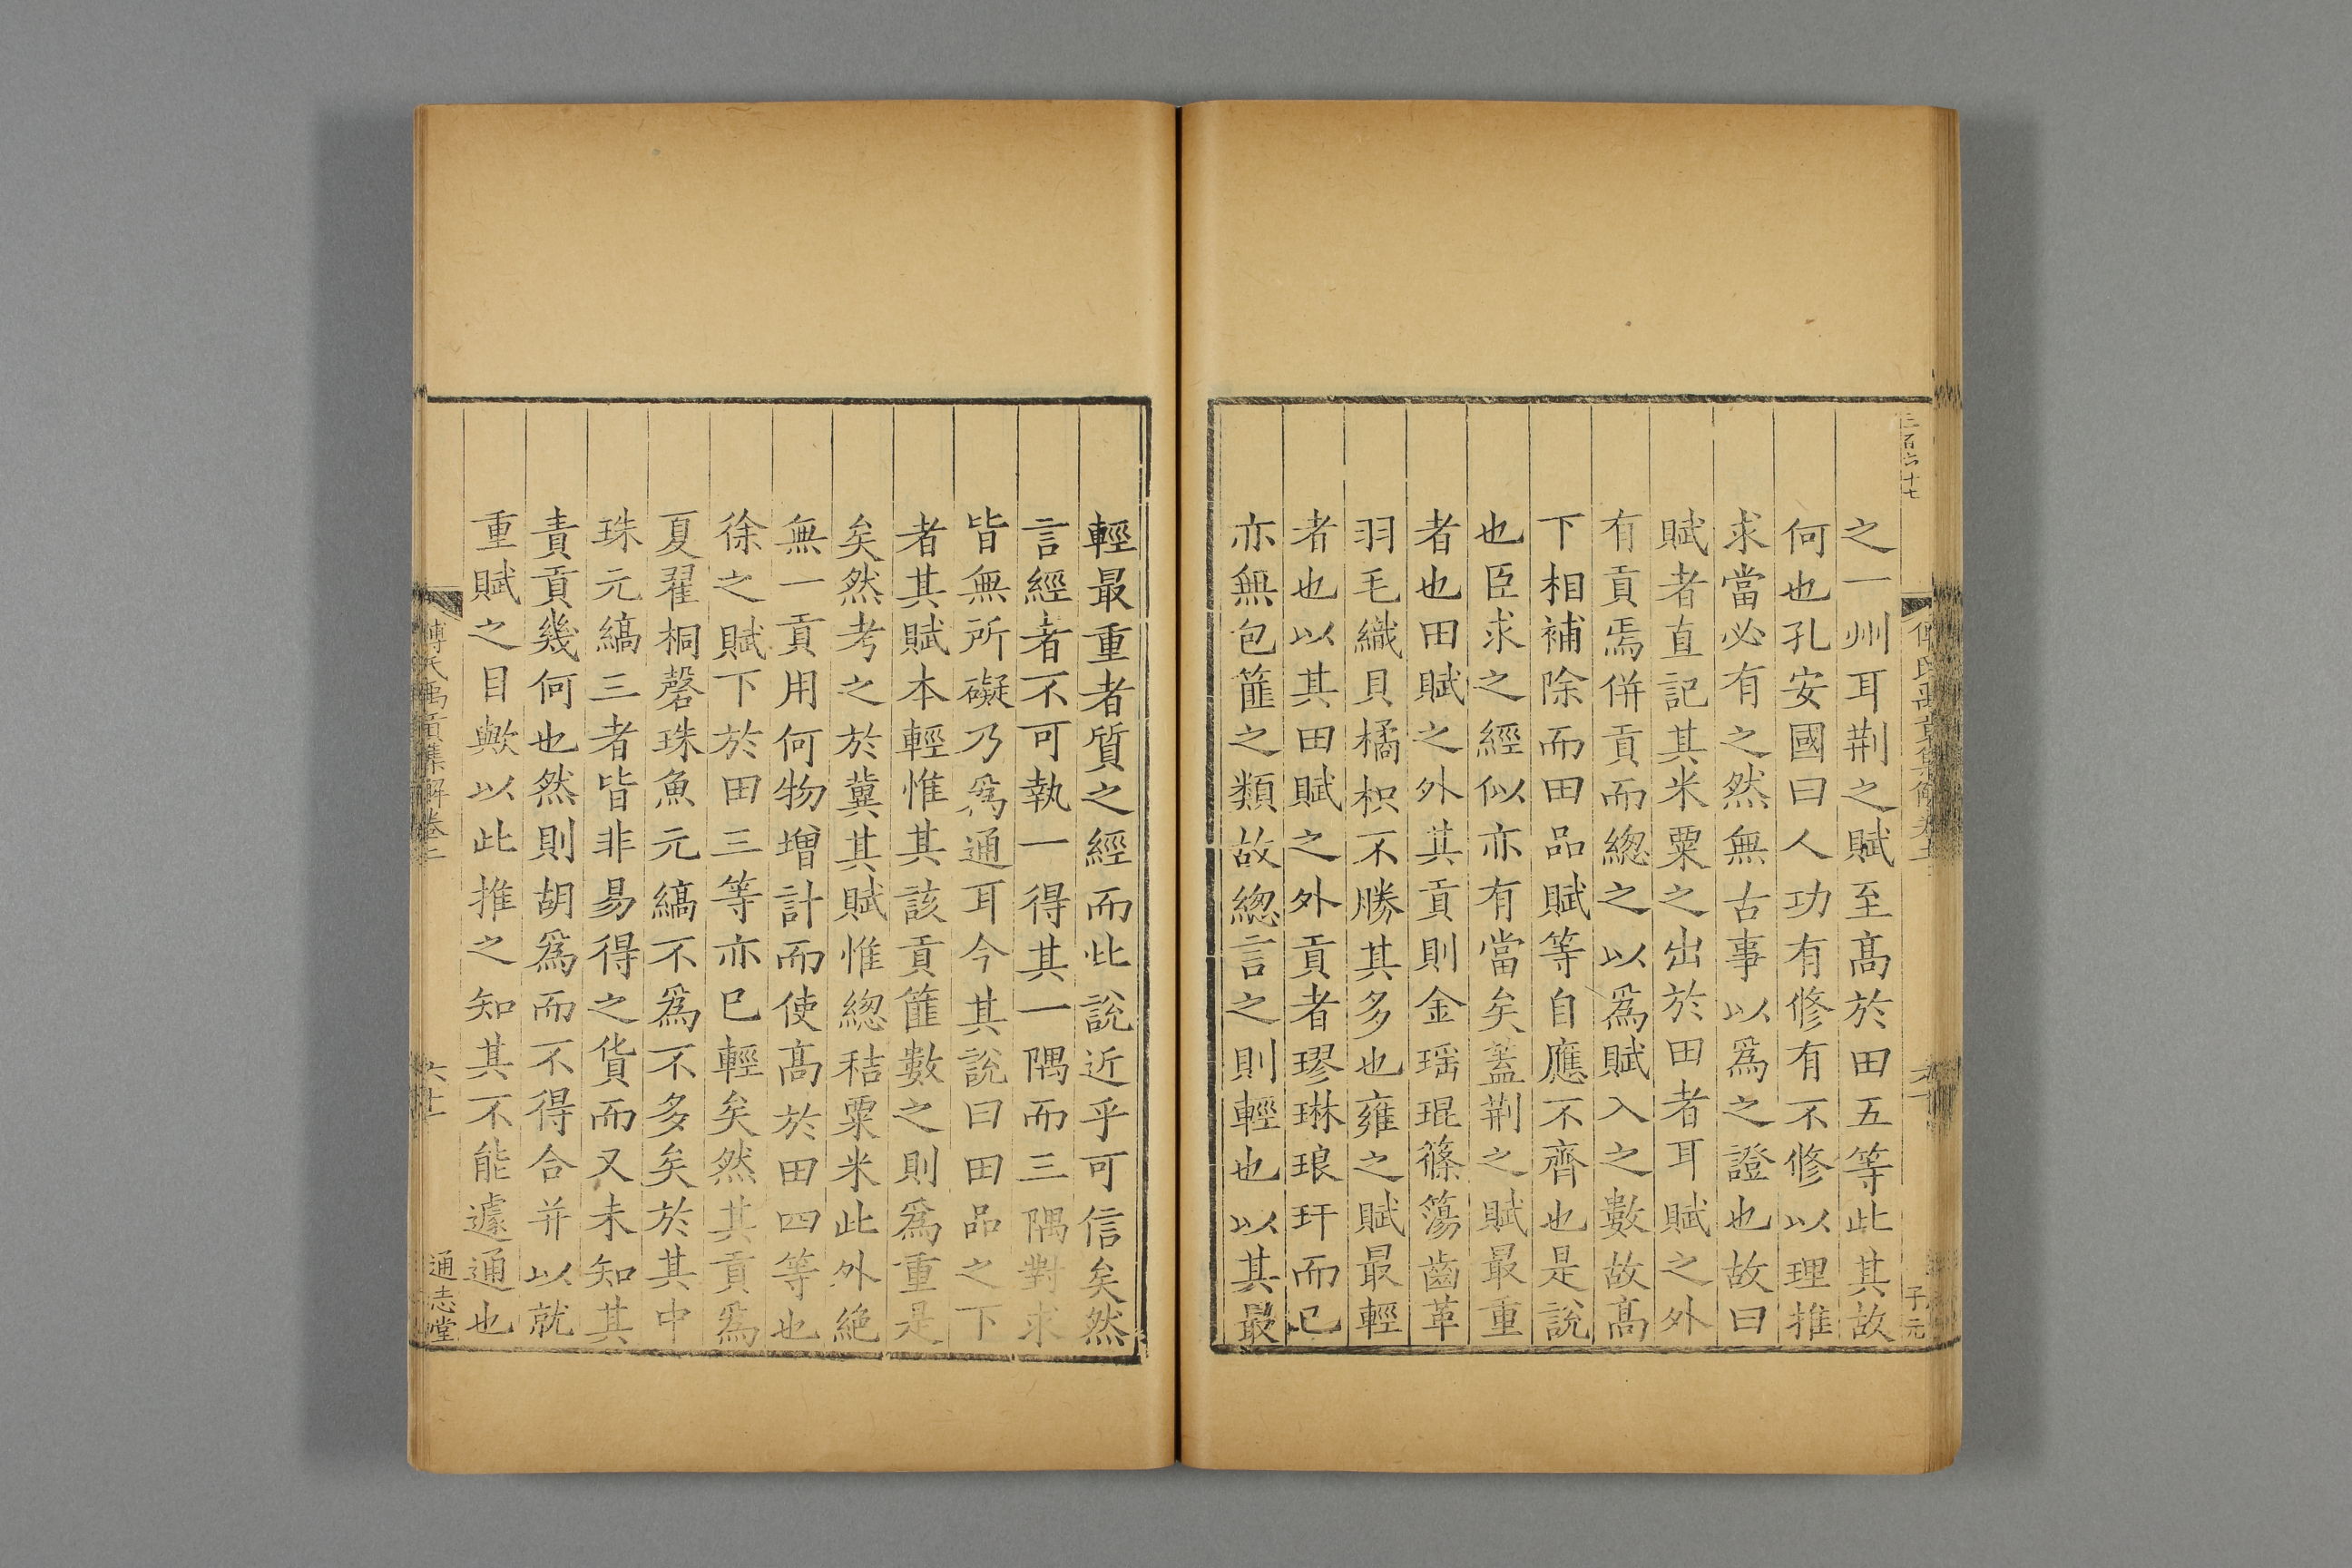 三百六十七
之一州耳荆之賦至髙於田五等此其故
何也孔安國曰人功有修有不修以理推
求當必有之然無古事以爲之證也故曰
賦者直記其米粟之出於田者耳賦之外
有貢焉併貢而緫之以爲賦入之數故髙
下相補除而田品賦等自應不齊也是說
也臣求之經似亦有當矣蓋荆之賦最重
者也田賦之外其貢則金瑶琨篠簜齒革
羽毛織貝橘枳不勝其多也雍之賦最輕
者也以其田賦之外貢者璆琳琅玕而已
亦無包篚之類故緫言之則輕也以其最
子元
輕最重者質之經而此說近乎可信矣然
言經者不可執一得其一隅而三隅對求
皆無所礙乃爲通耳今其說曰田品之下
者其賦本輕惟其該貢篚數之則爲重是
矣然考之於冀其賦惟緫秸粟米此外絶
無一貢用何物增計而使髙於田四等也
徐之賦下於田三等亦巳輕矣然其貢爲
夏翟桐磬珠魚元縞不爲不多矣於其中
珠元縞三者皆非易得之貨而又未知其
責貢幾何也然則胡爲而不得合并以就
重賦之目歟以此推之知其不能遽通也
傅氏禹貢集解卷二
通志堂